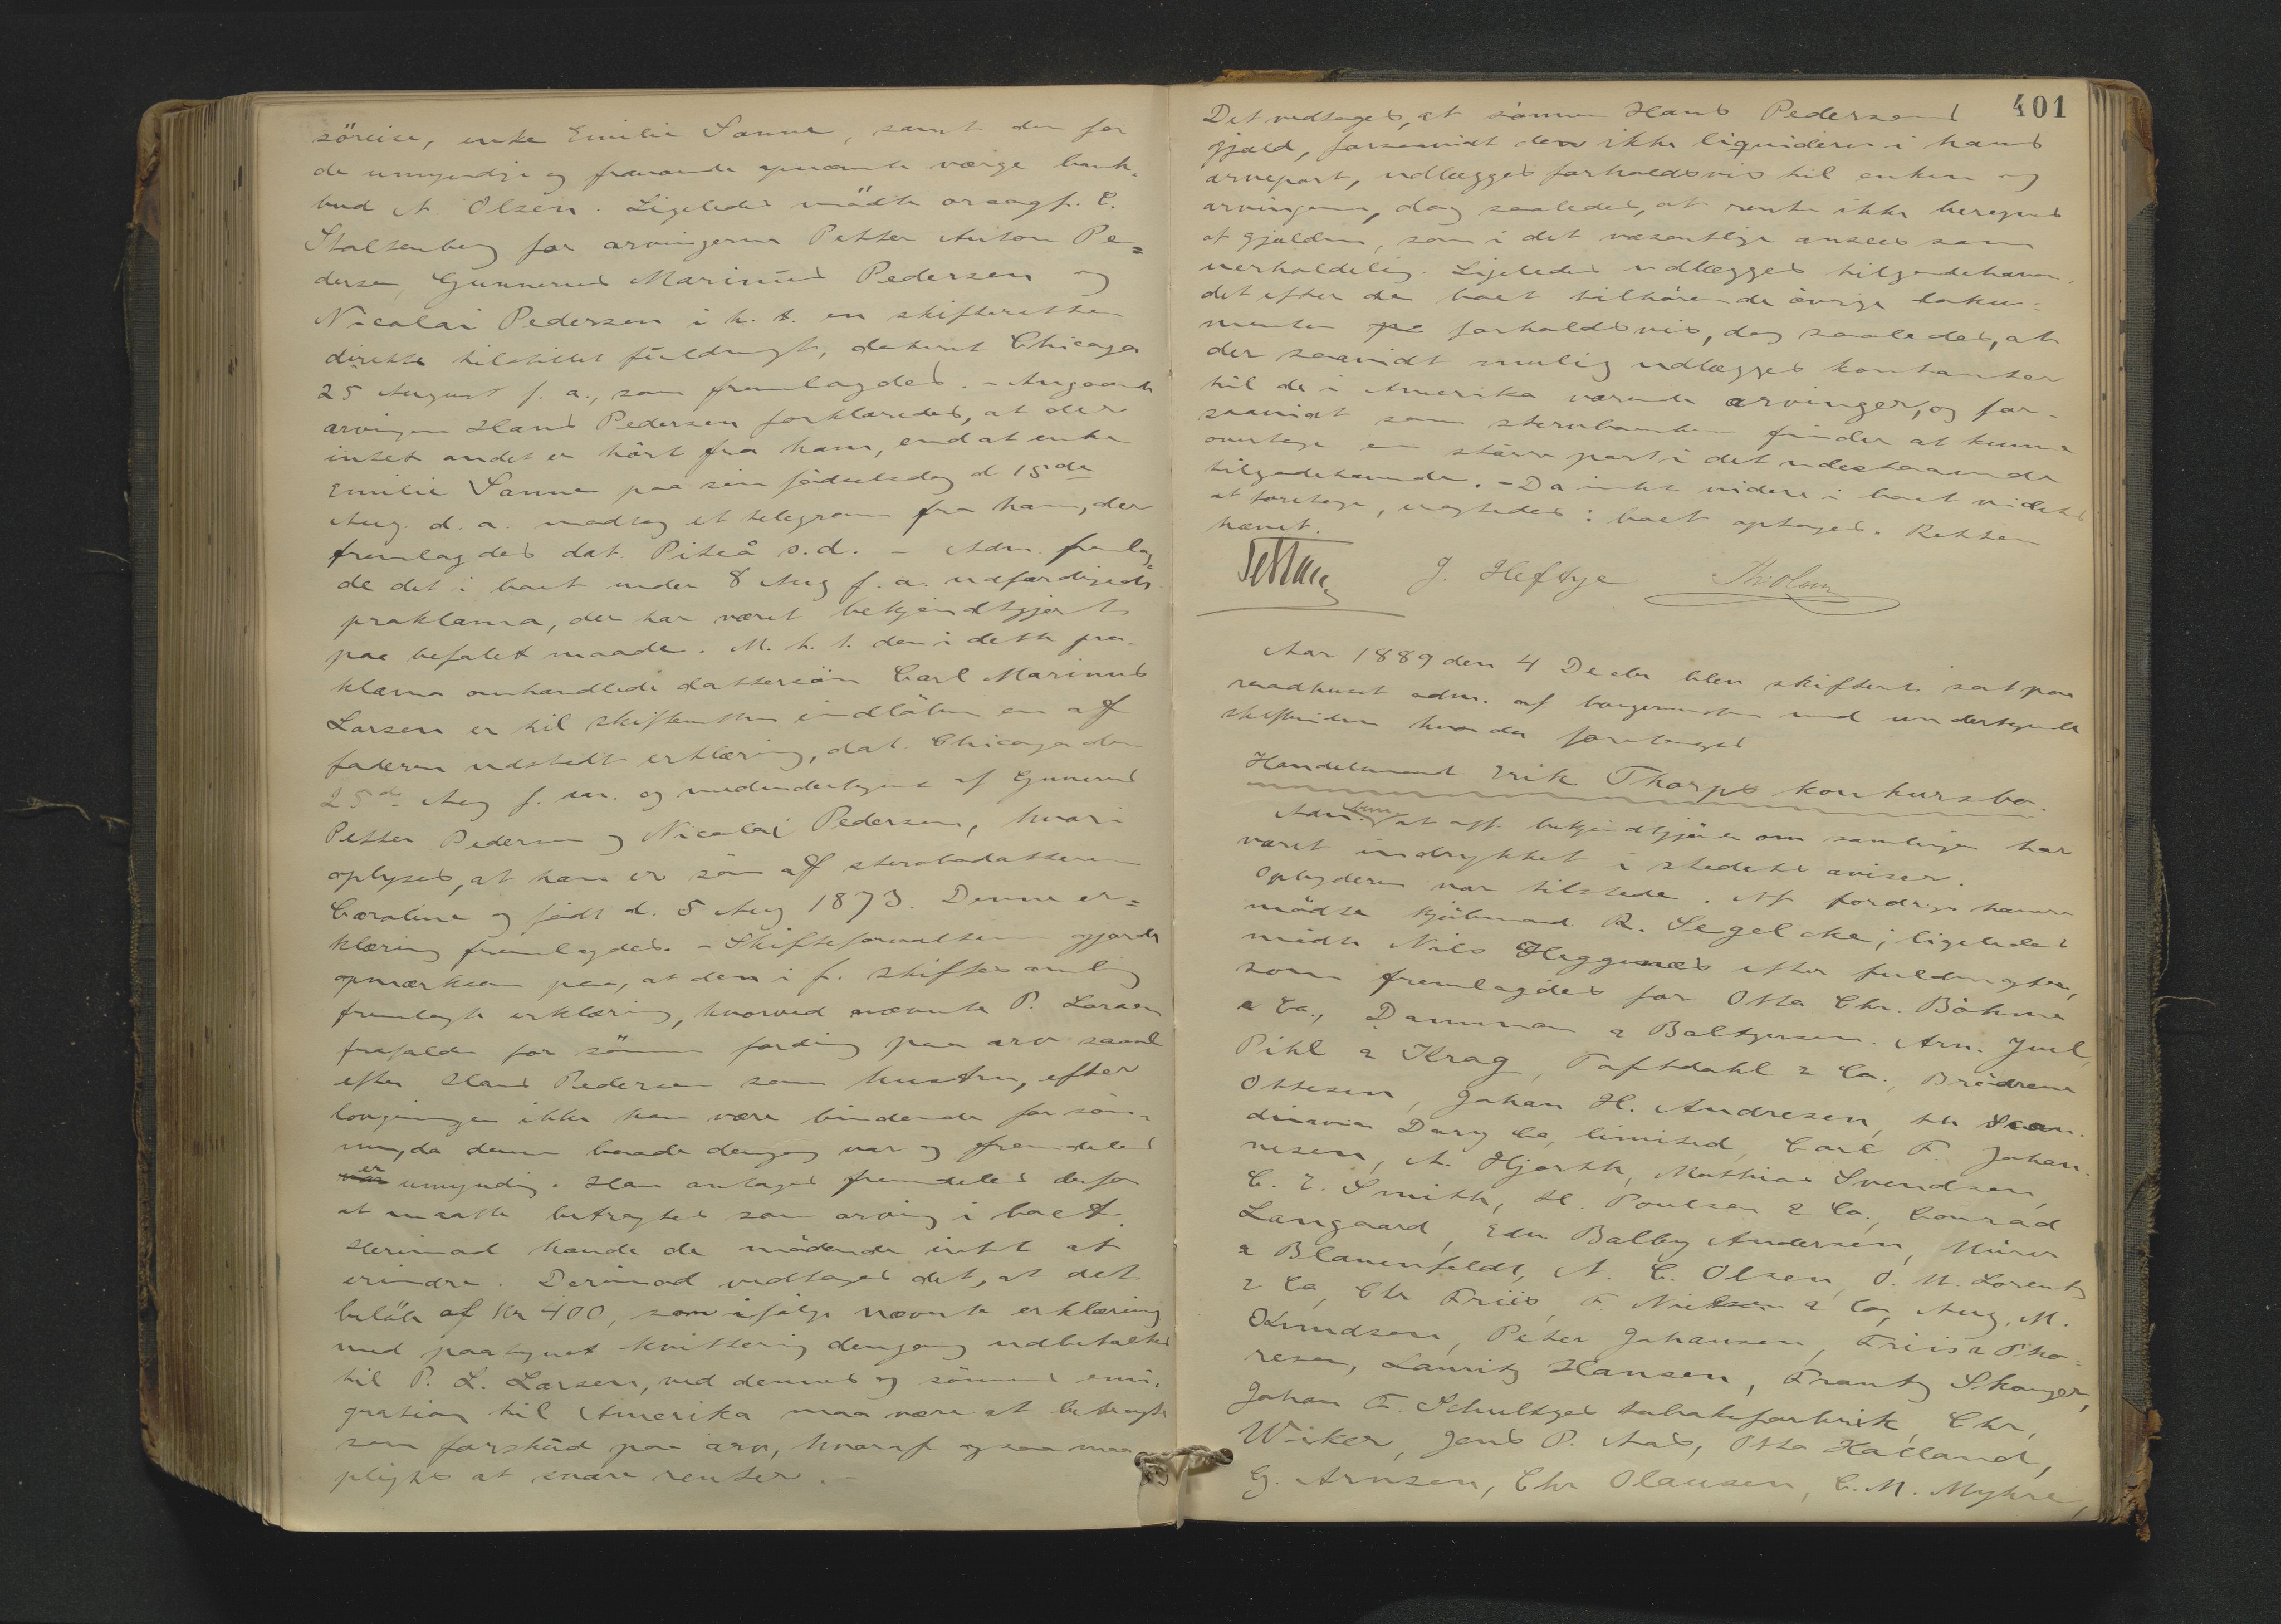 söreise, enke Emilie Sanne, samt den for
de umyndige og fraværende opnævnte værge bank-
bud A. Olsen. Ligeledes mödte orsagf. C.
Stoltenberg for arvingerne Petter Anton Pe=
dersen, Gunnerius Marinius Pedersen og
Nicolai Pedersen i h. t. en skifteretten
direkte tilstillet fuldmagt, dateret Chicago
25 August f. a., som fremlagdes. - Angaaende
arvingen Hans Pedersen forklaredes, at der
intet andet er hört fra ham, end at enke
Emilie Sanne paa sin födselsdag d 15de
Aug. d. a. modtog et telegram fra ham, der
fremlagdes dat. Piteå s.d. - Adm. fremlag-
de det i boet under 8 Aug f. a. udfærdigede
proklama, der har været bekjendtgjort
paa befalet maade. M. h. t. den i dette pro-
klama omhandlede dattersön Carl Marinus
Larsen er til skifteretten indlöben en af
faderen udstedt erklæring, dat. Chicago den
25de Aug f. aar. og medundertegnet af Gunnerius
Petter Pedersen og Nicolai Pedersen, hvori
oplyses, at han er sön af sterbodatteren
Caroline og födt d. 5 Aug 1873. Denne er=
klæring fremlagdes. - Skifteforvalteren gjorde
opmærksom paa, at den i f. skiftesamling
fremlagte erklæring, hvorved nævnte P. Larsen
frafalder for sönnen fordring paa arv saavel
efter Hans Pedersen som hustru, efter
lovgivningen ikke kan være bindende for sön-
nen, da denne baade dengang var og fremdeles
er umyndig. Han antages fremdeles derfor
at maatte betragtes som arving i boet.
Herimod havde de mödende intet at
erindre. Derimod vedtages det, at det
belöb af Kr 400, som ifölge nævnte erklæring
med paategnet kvittering dengang udbetaltes
til P. L. Larsen, ved dennes og sönnens emi-
gration til Amerika maa være at betragte
som forskud paa arv, hvoraf ogsaa maa
pligtes at svare renter. -
401
Det vedtages, at sönnen Hans Pedersens
gjæld, forsaavidt den ikke liquideres i hans
arvepart, udlægges forholdsvis til enken og
arvingerne, dog saaledes, at rente ikke beregnes
af gjælden, som i det væsentlige ansees som
uerholdelig. Ligeledes udlægges tilgodehaven-
det efter de boet tilhörende övrige doku-
menter forholdsvis, dog saaledes, at
der saavidt mulig udlægges kontanter
til de i Amerika værende arvinger, og for-
saavidt som sterboenken finder at kunne
overtage en större part i det udestaaende
tilgodehavende. - Da intet videre i boet vidstes
at foretage, vedtoges: boet optages. Retten
hævet.
J. Heftye Th. Olsen
Aar 1889 den 4 Decbr blev skifteret sat paa
raadhuset adm. af borgermesteren med undertegnede
skiftevidner hvorda foretoges
Handelsmand Erik Thorps konkursbo.
Adm. at bekjendtgjörelse om samlingen har
været indrykket i stedets aviser.
Opbyderen var tilstede. Af fordringshavere
mödte kjöbmand R. Segelcke; ligeledes
mödte Nils Heggenæs efter fuldmagter,
som fremlagdes for Otto Chr. Böhme
& Co., Damman & Baltzersen. Arn. Juel,
Pihl & Krag, Toftdahl & Co., Brödrene
Ottesen, Johan H. Andresen, the Scan-
dinavia Dary Co, limited, Carl F. Johan-
nesen, A. Hjorth, Mathias Svendsen,
C. E. Smith, H. Poulsen & Co., Conrad
Langaard, Edv Balby Andersen, Mürer
& Blauenfeldt, A. C. Olsen, O. M. Lorentz
& Co, Chr Friis, F. Nielsen & Co, Aug. M.
Knudsen, Peter Johansen, Friis & Tho-
resen, Lauritz Hansen, Frantz Skouger,
Johan F. Schultzes tobaksfabrik, Chr,
Wiker, Jens P. Aas, Otto Halland,
G. Arnsen, Chr Olausen, C. M. Myhre,